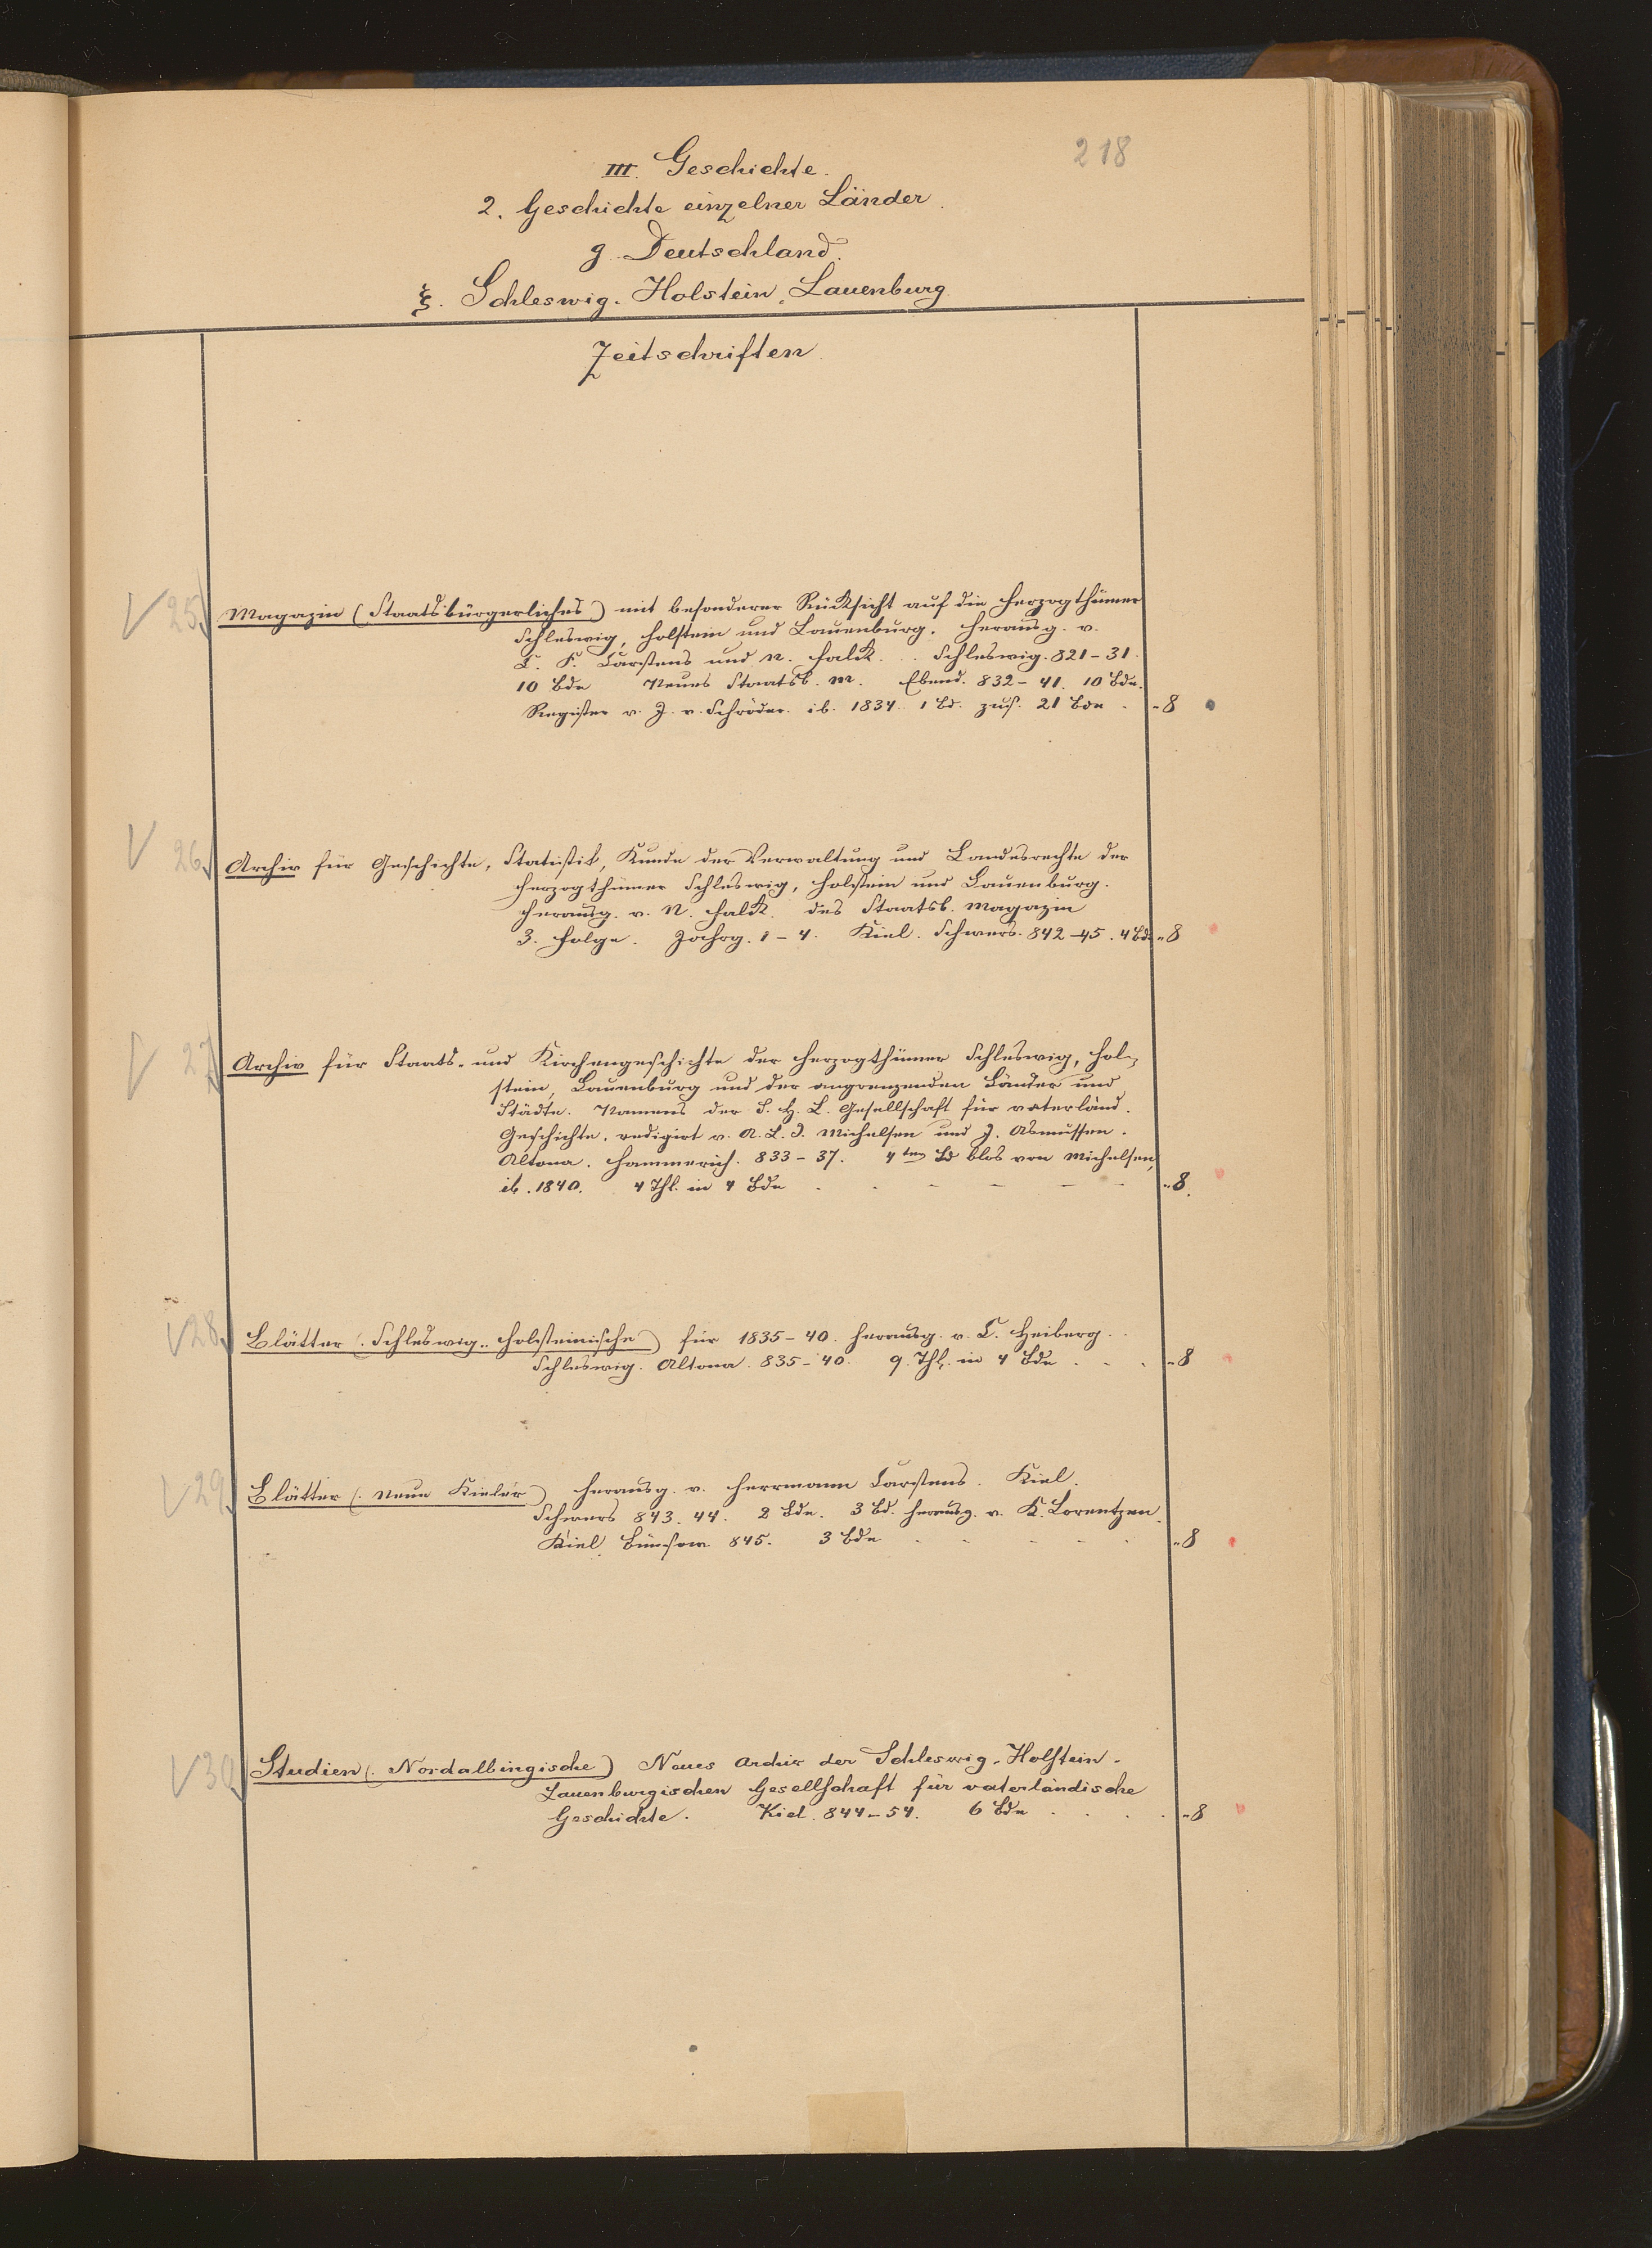 218
III. Geschichte.
2. Geschichte einzelner Länder.
g. Deutschland.
ξ. Schleswig. Holstein. Lauenburg
Zeitschriften
25. Magazin (Staatsbürgerliches) mit besonderer Rücksicht auf die Herzogthümer
Schleswig, Holstein und Lauenburg. Herausg. v.
C. F. Carstens und N. Falck. .. Schleswig. 821-31.
10 Bde Neues Staatsb. M. Ebend. 832-41. 10 Bde.
Register v. J. v. Schröder. ib. 1834. 1 Bd. zus. 21 Bde . „8
26. Archiv für Geschichte, Statistik, Kunde der Verwaltung und Landesrechte der
Herzogthümer Schleswig, Holstein und Lauenburg.
Herausg. v. N. Falck. des Staatsb. Magazin
3. Folge. Jahrg. 1-4. Kiel. Schwers. 842-45. 4 Bde „8
27. Archiv für Staats- und Kirchengeschichte der Herzogthümer Schleswig, Hol-
stein, Lauenburg und der angrenzenden Länder und
Städte. Namens der S. H. L. Gesellschaft für vaterländ.
Geschichte, redigirt v. A. L. J. Michelsen und J. Asmussen.
Altona. Hammerich. 833-37. 4ten Bd blos von Michelsen,
ib. 1840. 4 Thl. in 4 Bde . . - - - - „8.
28. Blätter (. Schleswig.. Holsteinische) für 1835-40. herausg. v. C. Heiberg. .
Schleswig. Altona. 835-40. 9. Thl. in 4 Bde . . . „8
29. Blätter (. Neue Kieler) herausg. v. Herrmann Carstens. Kiel.
Schwers 843. 44. 2 Bde. 3 Bd. herausg. v. K. Lorentzen.
Kiel. Bünsow 845. 3 Bde . . . . . „8
30. Studien (. Nordalbingische) Neues Archiv der Schleswig-Holstein-
Lauenburgischen Gesellschaft für vaterländische
Geschichte. Kiel. 844-54. 6 Bde . . . . „8